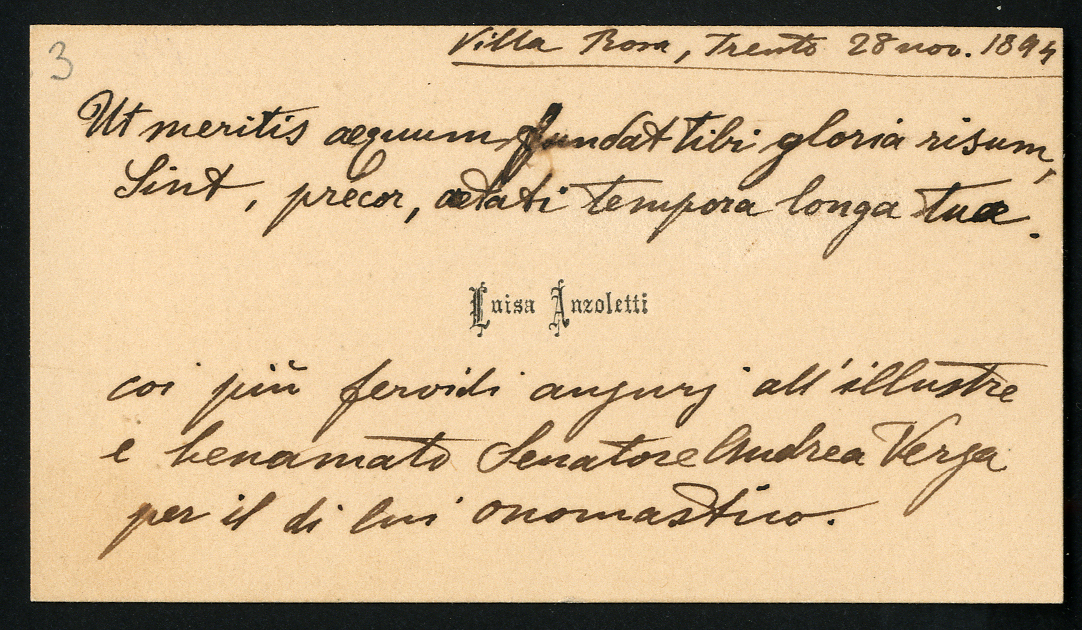 3
Villa Rosa, Trento 28 nov. 1894
Ut meritis æquum fundat tibi gloria risum,
Sint, precor, ætati tempora longa tuæ.
Luisa Anzoletti
coi più fervidi augurj all'illustre
e benamato Senatore Andrea Verga
per il di lui onomastico.